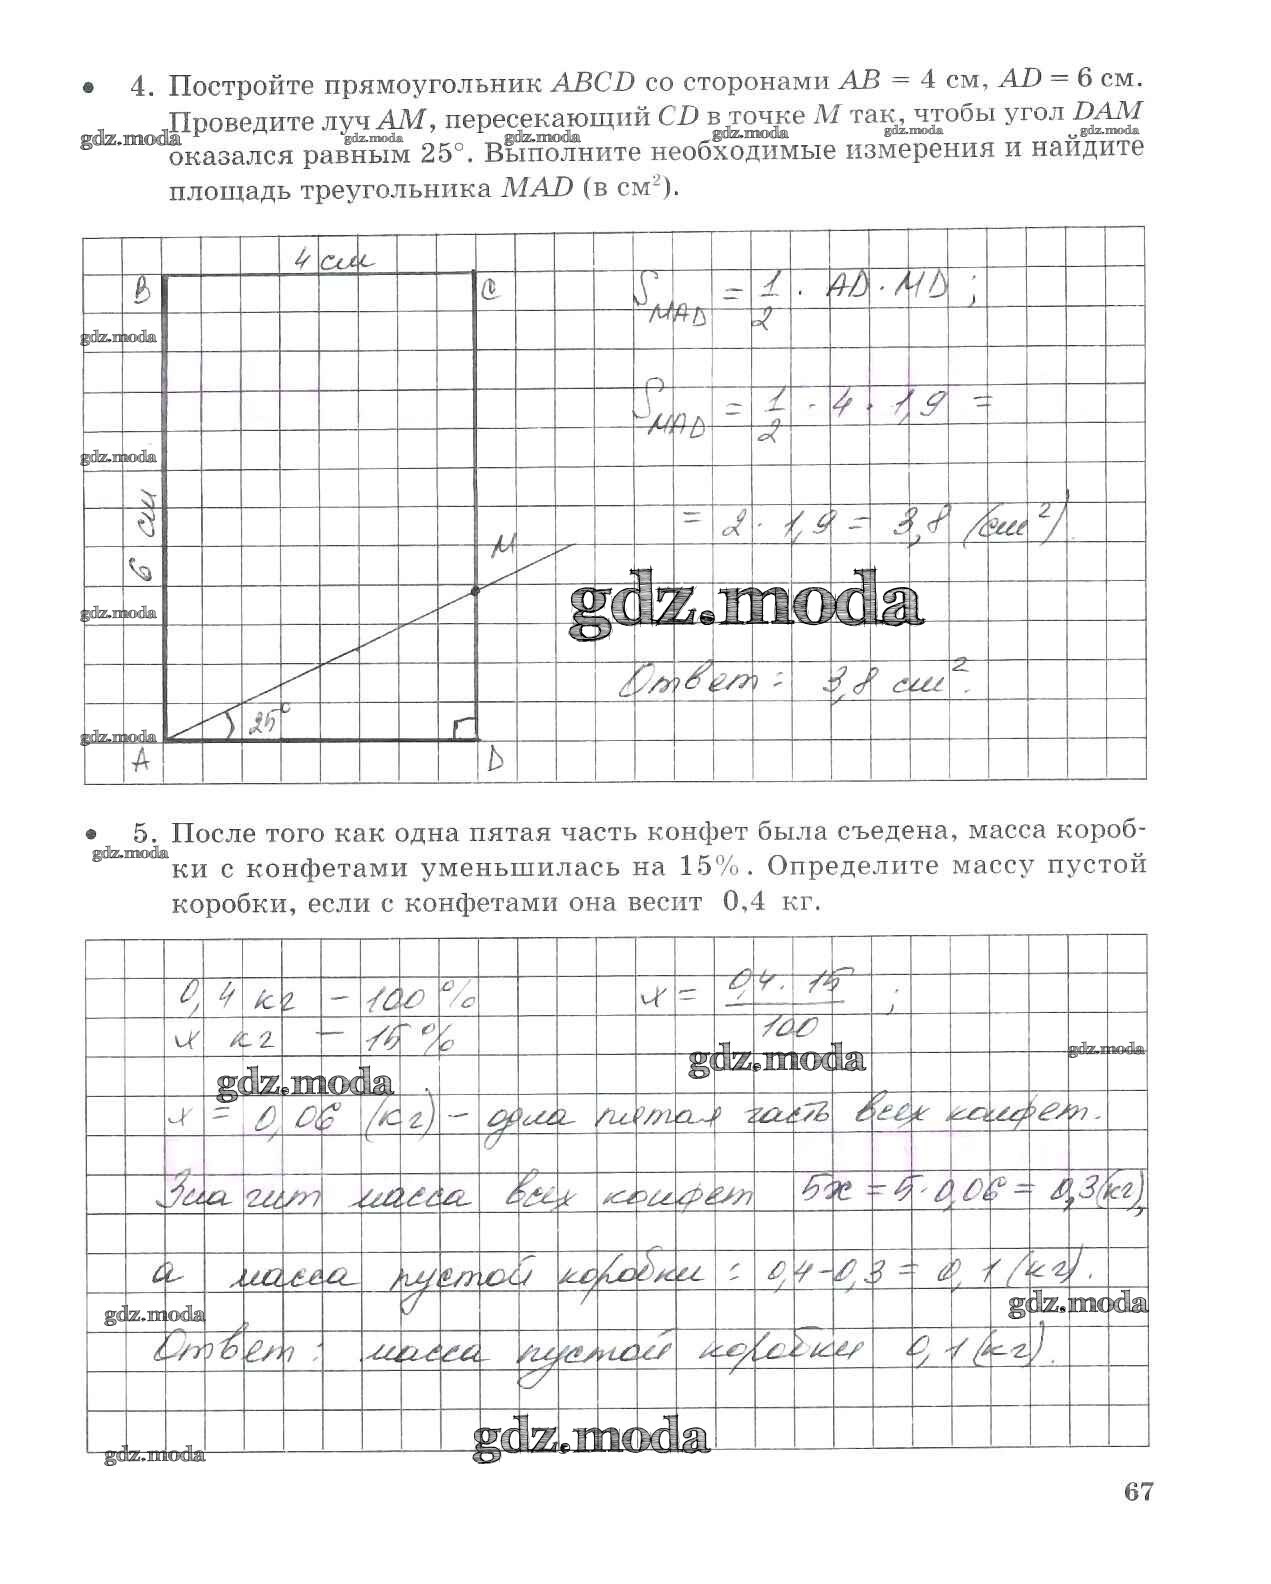 • 4. Постройте прямоугольник ABCD со сторонами AB = 4 см, AD = 6 см.
Проведите луч AM, пересекающий CD в точке M так, чтобы угол DAM
gdz.moda gdz.moda gdz.moda gdz.moda gdz.moda gdz.moda
оказался равным 25°. Выполните необходимые измерения и найдите
площадь треугольника MAD (в см²).
4 см
B C S MAD = 1/2 · AD · MD ;
gdz.moda
S MAD = 1/2 · 4 · 1,9 =
gdz.moda
6 см
= 2 · 1,9 = 3,8 (см²)
M
gdz.moda
gdz.moda
Ответ: 3,8 см².
25°
gdz.moda
A D
• 5. После того как одна пятая часть конфет была съедена, масса короб-
gdz.moda
ки с конфетами уменьшилась на 15%. Определите массу пустой
коробки, если с конфетами она весит 0,4 кг.
0,4 кг – 100 % x = 0,4 · 15 / 100 ;
x кг – 15 %
gdz.moda gdz.moda gdz.moda
x = 0,06 (кг) – одна пятая часть всех конфет.
Значит масса всех конфет 5x = 5 · 0,06 = 0,3 (кг),
а масса пустой коробки: 0,4 – 0,3 = 0,1 (кг).
gdz.moda gdz.moda
Ответ: масса пустой коробки 0,1 (кг).
gdz.moda
gdz.moda
67